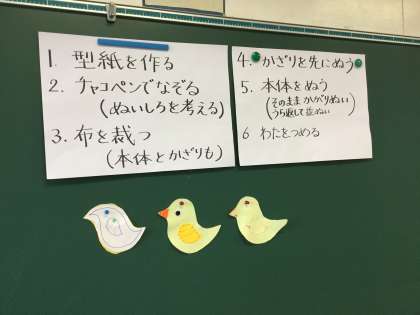 1. 型紙を作る
2. チャコペンでなぞる
(ぬいしろを考える)
3. 布を裁つ
(本体とかざりも)
4. かざりを先にぬう
5. 本体をぬう
(そのまま かがりぬい)
(うら返して 並ぬい)
6 わたをつめる